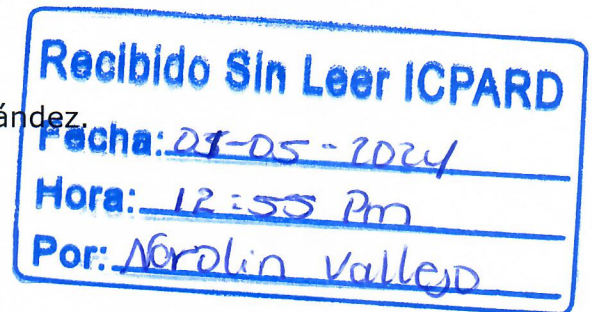 Recibido Sin Leer ICPARD
ández.
Fecha: 07-05-2024
Hora: 12:55 Pm
Por: Norolin Vallejo